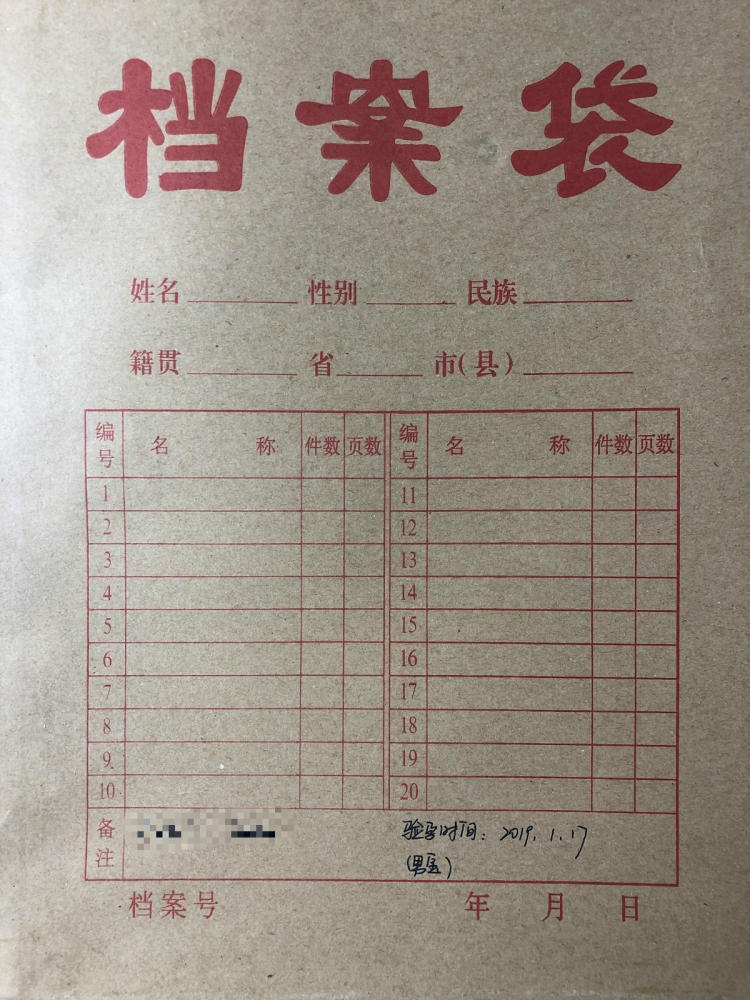 档案袋
姓名 性别 民族
籍贯 省 市(县)
编号 名称 件数 页数 编号 名称 件数 页数
1 11
2 12
3 13
4 14
5 15
6 16
7 17
8 18
9 19
10 20
备注 验室时间: 2019.1.17
(男宝)
档案号 年 月 日